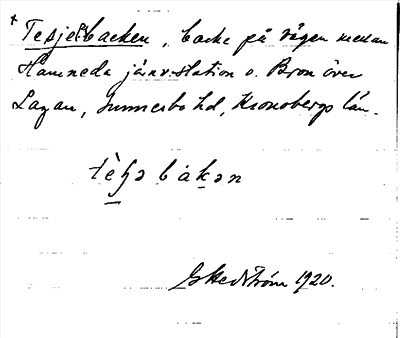 * Tesjebacken, backe på vägen mellan
Hamneda järnv.station o. Bron över
Lagan, Sunnerbo hd, Kronobergs län.
tèʃə bakən
G Hedström 1920.